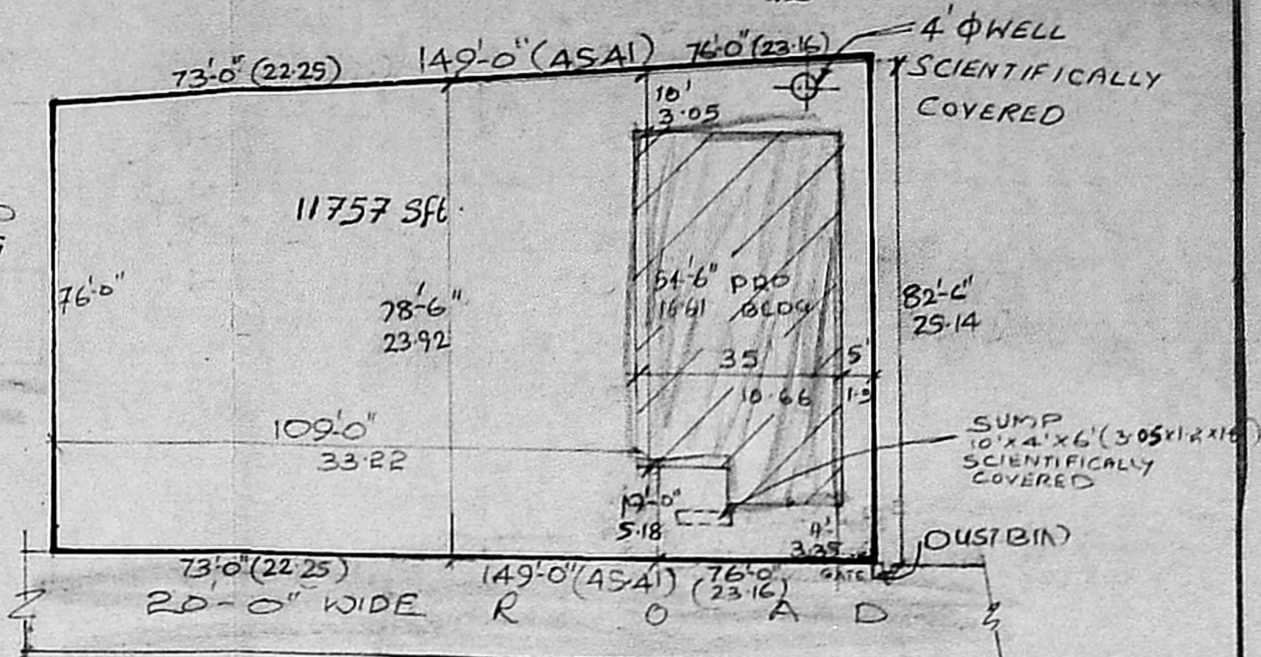 73'-0" (22.25)
149'-0" (45.41)
76'-0" (23.16)
4' Φ WELL
SCIENTIFICALLY
COVERED
10'
3.05
11757 Sft.
76'-0"
78'-6"
23.92
54'-6"
16.61
PRO
BLDG
82'-6"
25.14
35
10.66
5'
109'-0"
33.22
SUMP
10'x4'x6'
SCIENTIFICALLY
COVERED
17'-0"
5.18
3.35
DUSTBIN
GATE
73'-0" (22.25)
149'-0" (45.41)
76'-0"
(23.16)
20'-0" WIDE ROAD